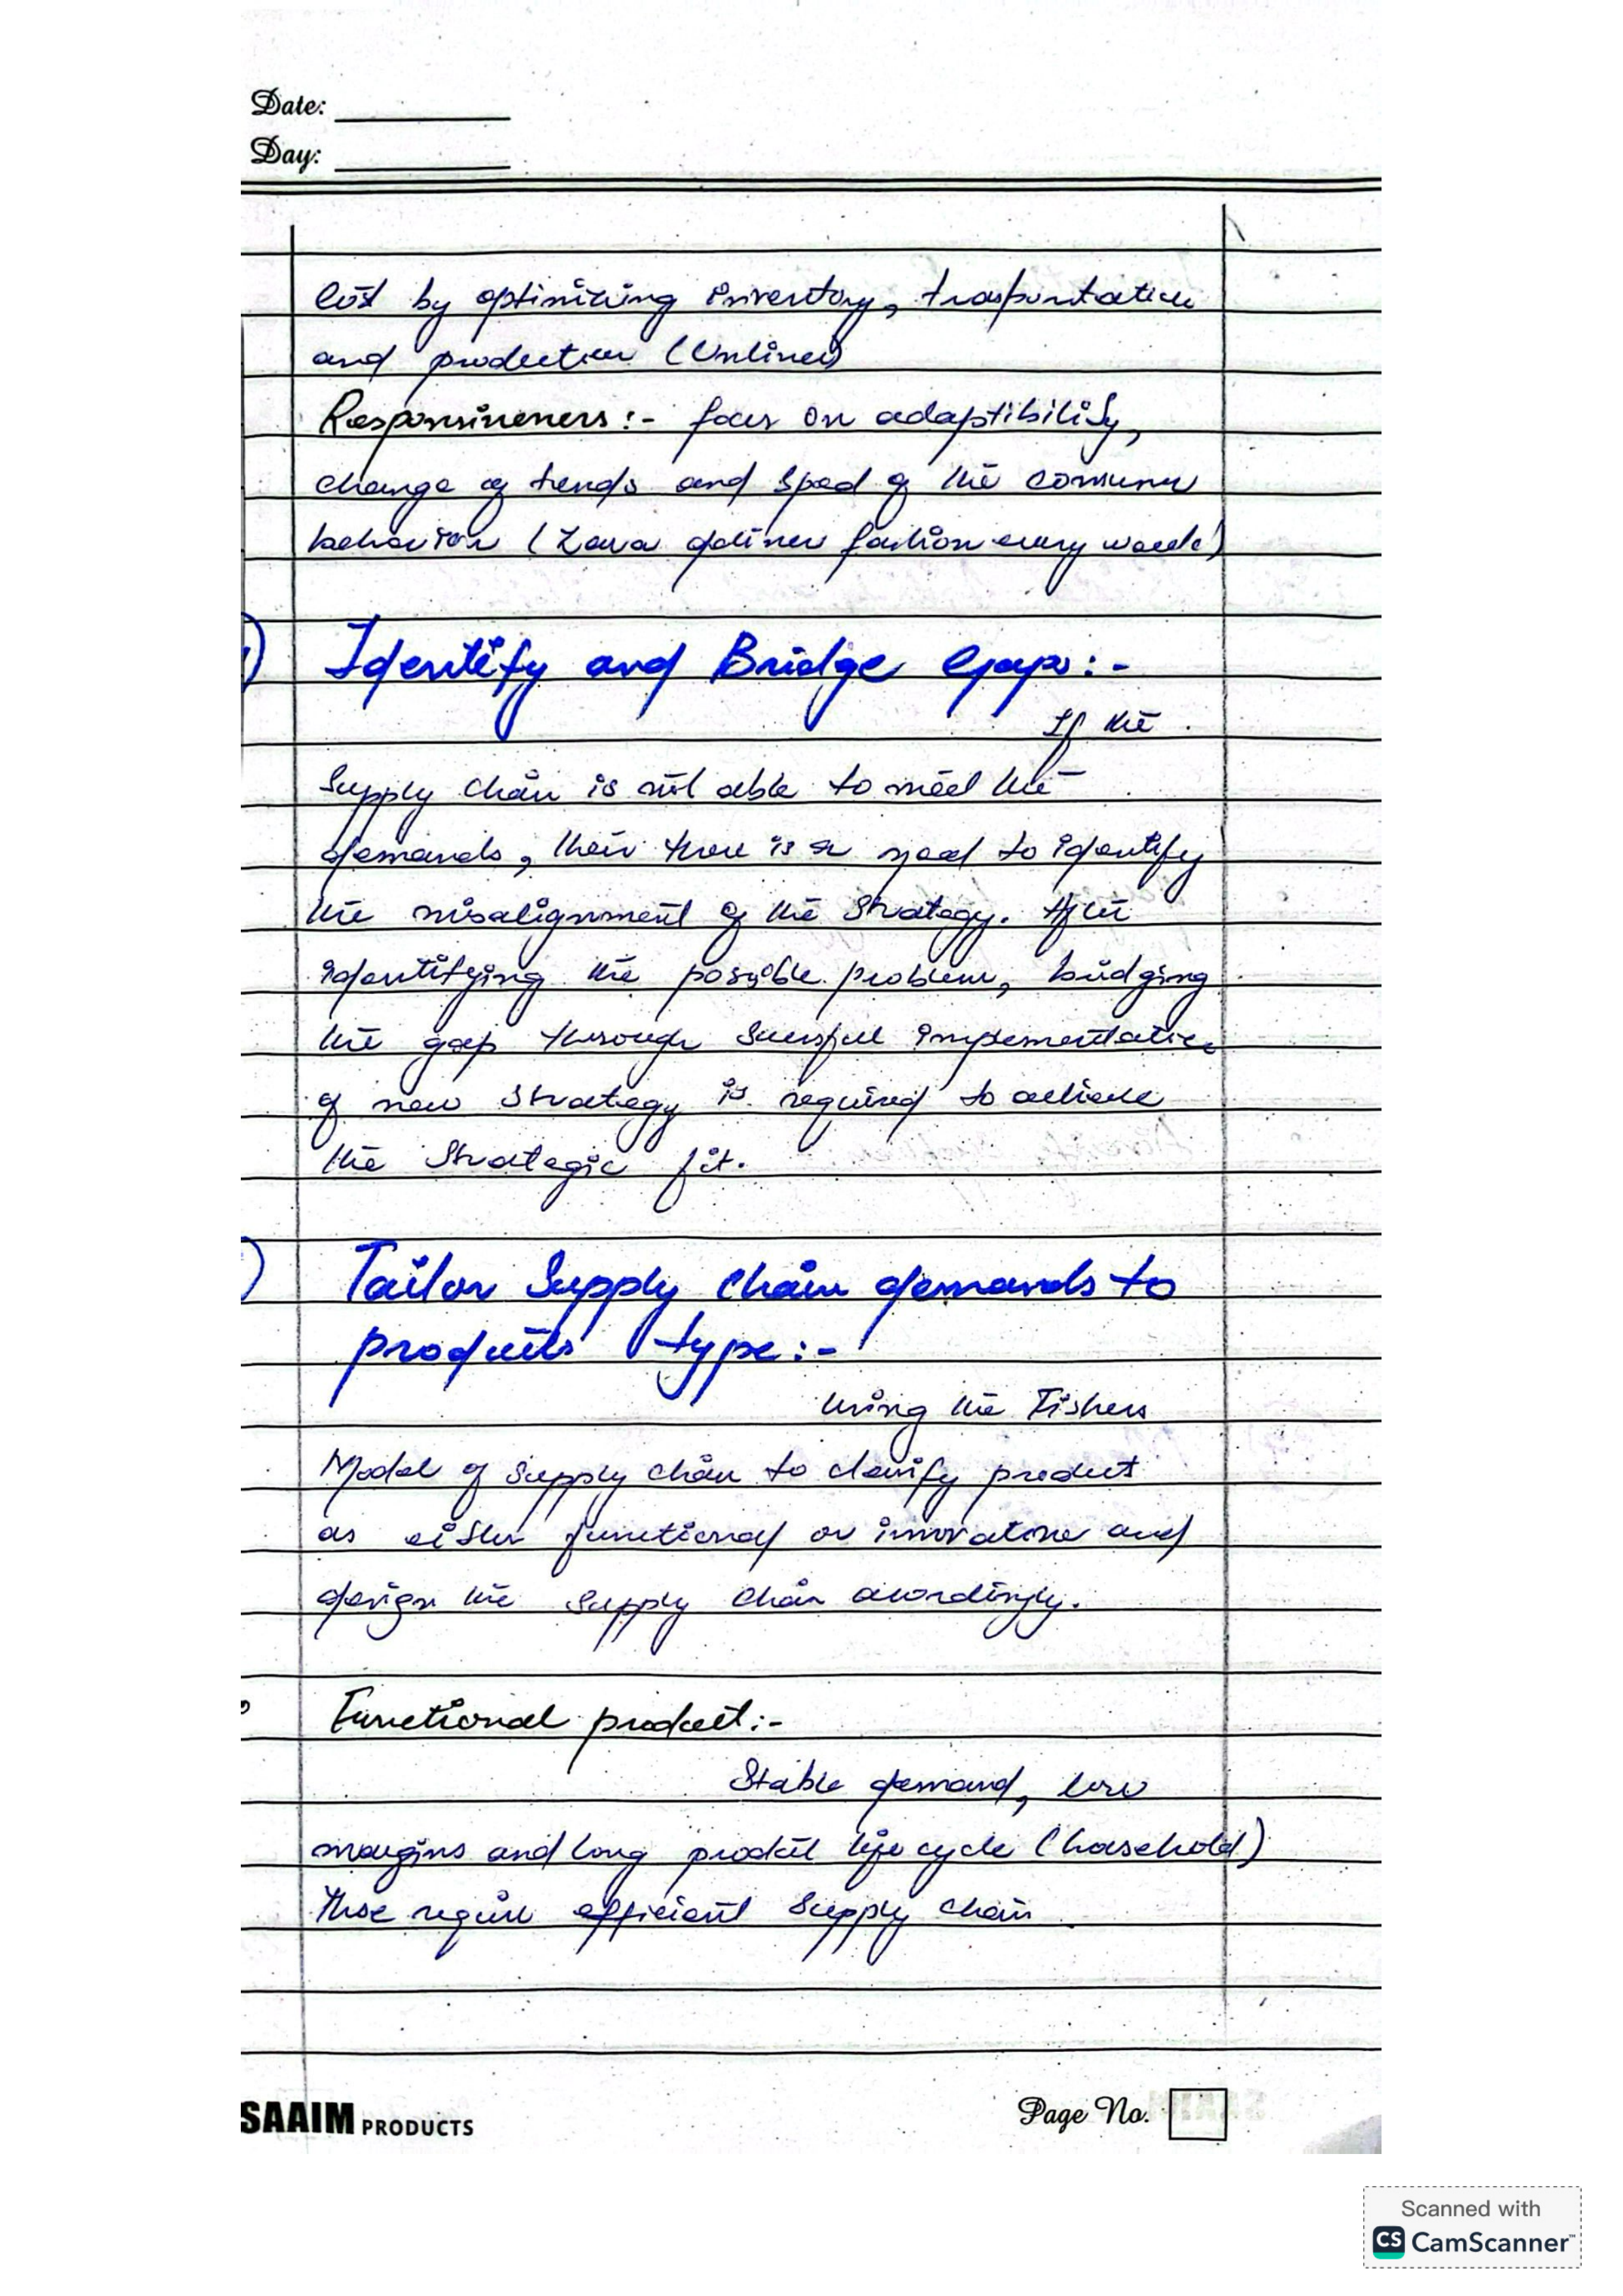 Date:
Day:
cost by optimizing inventory, trasportation
and production (Unliner)
Responsiveness:- focus on adaptibility,
change of trends and speed of the consumer
behavior (Zara deliver fashion every week)
Identify and Bridge Gaps:-
If the
Supply chain is not able to meet the
demands, their there is a need to identify
the misalignment of the strategy. After
identifying the possible problem, bridging
the gap through sucessful implementation
of new strategy is required to achieve
the strategic fit.
Tailor Supply chain demands to
products type:-
Using the Fishers
Model of supply chain to classify product
as either functional or innovative and
design the supply chain accordingly.
Functional product:-
Stable demand, low
margins and long product life cycle (household)
These require efficient supply chain
SAAIM PRODUCTS
Page No.
Scanned with
CS CamScanner